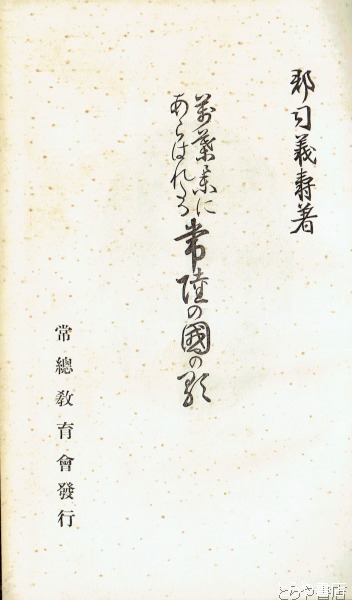 郡司義壽著
萬葉集に
あらはれたる常陸の國の歌
常總教育會發行
とらや書店